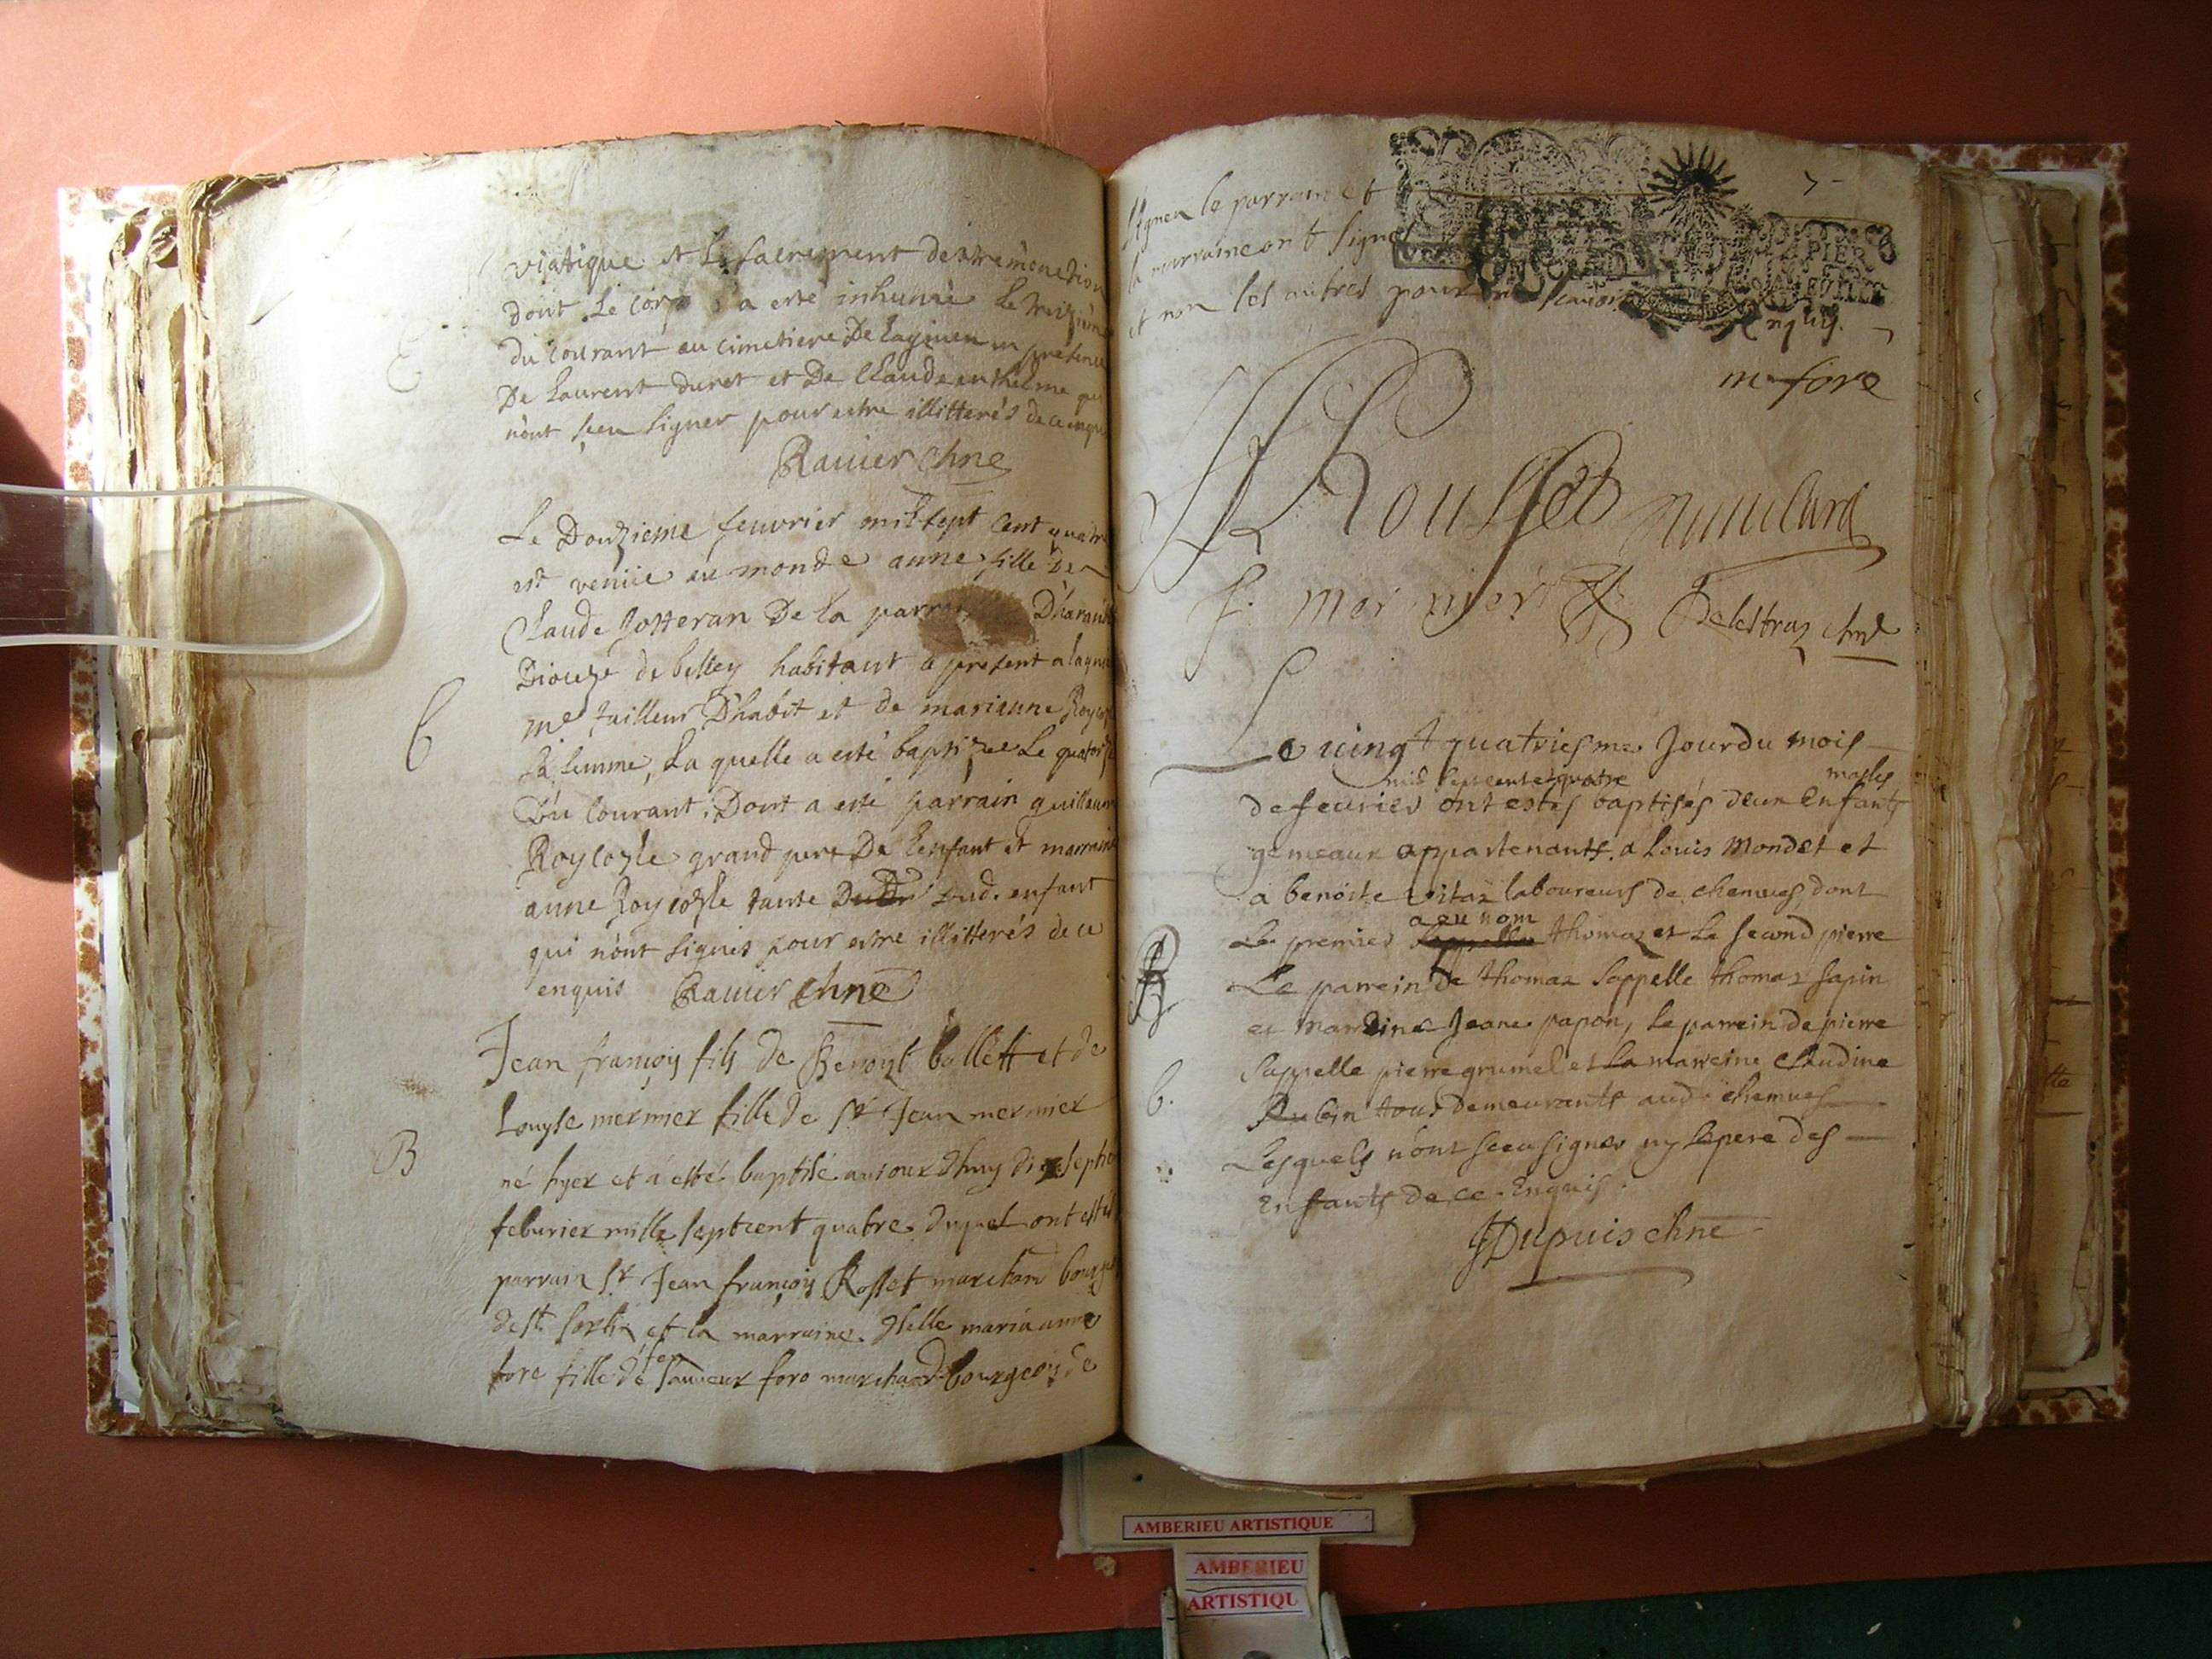 viatique et le sacrement dextremonction
Dont le corp a esté inhumé le treizieme
du courant au cimetiere De lagnieu en presence
De Laurent duret et De Claude anthelme qui
n'ont sceu signer pour estre illitterés de ce enquis
Ravier chne
Le Douzieme feuvrier mil sept cent quatre
est venüe au monde anne fille De
Claude Jotteran De la
Diouze de belley habitant a present a lagnieu
me tailleur D'habit et de marianne
sa femme, la quelle a esté baptizee le quatorze
Du courant, Dont a esté parrain guillaume
Roycozle grand pere De l'enfant et marraine
anne Roycozle tante Dud. enfant
qui n'ont signés pour estre illitterés de ce
enquis Ravier chne
B
Jean françois fils de Benoyt bollett et de
Louyse mermier fille de Sr Jean mermier
né hyer et á esté baptisé aujourdhuy dixseptie
feburier mille septcent quatre duquel ont estés
parrain Sr Jean françois Rosset marchant bourgeois
de st sorlin et la marraine dlle maria anne
fore fille de feu fore marchand bourgeois de
la marraine ont signé
et non les autres pour ne scavoir
enquis.
m fore
Rousset
f. mermier
Delestraz chne
PAPIER
Le vingt quatriesme Jour du mois
mil sept cent et quatre masles
de feuvrier ont estés baptisés deux Enfants
gemeaux appartenants a Louis Mondet et
a benoite vitaz laboureurs de chemves, dont
a eu nom
Le premier thomaz et Le second pierre
Le parrein de thomaz sappelle thomaz sapin
et marreine Jeane papon, Le parrein de pierre
sappelle pierre grumel et la marreine Claudine
Rubin tous demeurants aud chemves
b.
Lesquels n'ont sceu signer ny le pere des
Enfants de ce Enquis.
JDupuis chne
AMBERIEU ARTISTIQUE
AMBERIEU
ARTISTIQU